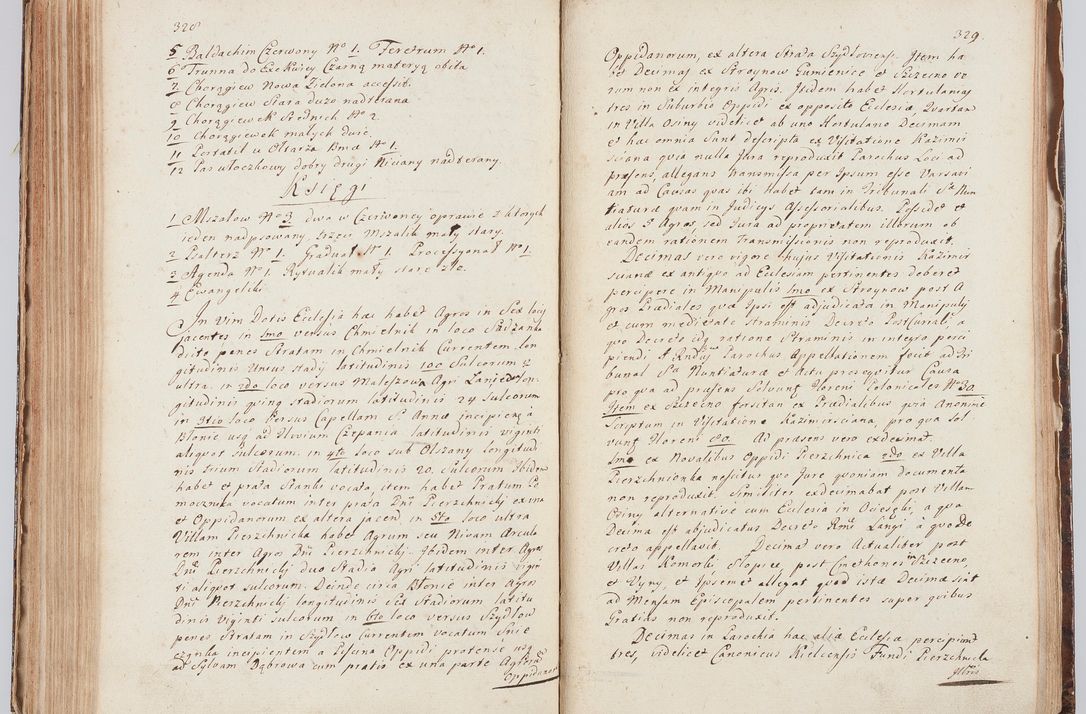 328
5 Baldachim Czerwony No 1. Feretrum No 1.
6 Trunna do Exekwiey Czarną materyą obita
7 Chorągiew Nowa Zielona accessit.
8 Chorągiew Stara duzo nadrtana
9 Chorągiewek Srednich No 2.
10 Chorągiewek małych dwie.
11 Portatil w Ołtarzu No 1.
12 Pas włoczkowy dobry drugi Niciany nadterany.
Księgi
1 Mszałow No 3 dwa w Czerwoney oprawie z ktorych
ieden nadpsowany trzeci Mszalik mały stary.
2 Psalterz No 1. Graduał No 1. Processyonał No 1.
3 Agenda No 1. Rytualik mały stare złe.
4 Ewangeliki
In Vim Dotis Ecclesia hac habet Agros in Sex locis
jacentes in 1mo versus Chmielnik in loco Sadzawka
dicto penes Stratam in Chmielnik Currentem lon
gitudinis Unius stadij latitudinis 100 Sulcorum &
ultra. in 2do loco versus Maleszowa Agri Lanjedlon
gitudinis quinq stadiorum latitudinis 24 sulcorum
in 3tio loco Versus Capellam S. Annæ incipiens à
Błonie usq ad fluvium Czepania latitudinis viginti
aliquot sulcorum. in 4to loco sub Olszany longitudi
nis trium stadiorum latitudinis 20. Sulcorum Ibidem
habet et prata Stanki vocata item habet Pratum Po
mocznika vocatum inter prata Dni Pierzchnicki ex una
et Oppidanorum ex altera jacend. in 5to loco ultra
Villam Pierzchnicka habet Agrum seu Nivam Arculo
rem inter Agros Dni Pierzchnickij. Ibidem inter Agros
Dni Pierzchnickij duo Stadia Agri latitudinis vigin
ti aliquot sulcorum. Deinde circa Błonie inter agru
Dni Pierzchnickij longitudinis Sex Stadiorum latitu
dinis Viginti sulcorum in 6to loco versus Szydłow
penes Stratam in Szydłow Currentem vocatum Snie
incipientem a Piscina Oppidi protense usq
ad Sylvam Dąbrowa cum pratis ex una parte Agroru
Oppidano
329.
Oppidanorum, ex altera Strata Szydłoviensi. Item ha
bet Decimas ex Stroynow Gumienice et Szczecno ve
rum non ex integris Agris. Itidem habet Hortulanias
tres in Suburbio Oppidi ex opposito Ecclesiæ, Quartam
in Villa Osiny videlicet ab uno Hortulano Decimam
et hæc omnia Sunt descripta ex Visitatione Kazimir
sciana quia nulla Jura reproduxit Parochus Loci ad
præsens, allegans transmissa per Ipsum esse Varsavi
am ad Causas quas ibi Habet tam in Tribunali Sæ Nun
tiaturæ quam in Judicijs Assessorialibus. Possidet et
alios 3 Agros, sed Jura ad proprietatem illorum ob
eandem rationem Transmissionis non reproduxit.
Decimas vero vigore hujus Visitationis Kazimir
scianæ ex antiquo ad Ecclesiam pertinentes deberet
percipere in Manipulis 1mo ex Stroynow post A
gros Prædiales quæ Ipsi est adjudicata in Manipulis
et cum medietate Straminis Decreto PostCurali, a
quo Decreto idq ratione Straminis in integro perci
piendi I Rndus Parochus Appellationem fecit ad Tri
bunal Sæ Nuntiaturæ et Actu prosequitur Causa
pro qua ad præsens Solvunt floreni Polonicales No 30.
Item ex Szczecno forsitan ex Prædialibus quia Anonime
Scriptum in Visitatione Kazimirsciana, pro qua sol
vunt floreni 80. Ad præsens vero exdecimat.
1mo ex Novalibus Oppidi Pierzchnica 2do ex Villa
Pierzchnionka nescitur quo Jure quoniam documenta
non reproduxit. Similiter exdecimabat post Villam
Osiny alternative cum Ecclesia in Ociesęki, a qua
Decima est abjudicatus Decreto Rmi Langi a quo De
creto appellavit. Decimæ vero Actualiter post
Villas Komorki, Słopice, post Cmethones in Szczecno,
et Ugny, et Ipsemet allegat quod istæ Decimæ sint
ad Mensam Episcopalem pertinentes super quibus
Gratias non reproduxit.
Decimas in Parochia hac aliæ Ecclesiæ percipiunt
tres, videlicet Canonicus Kielcensis Fundi Pierzchnicka